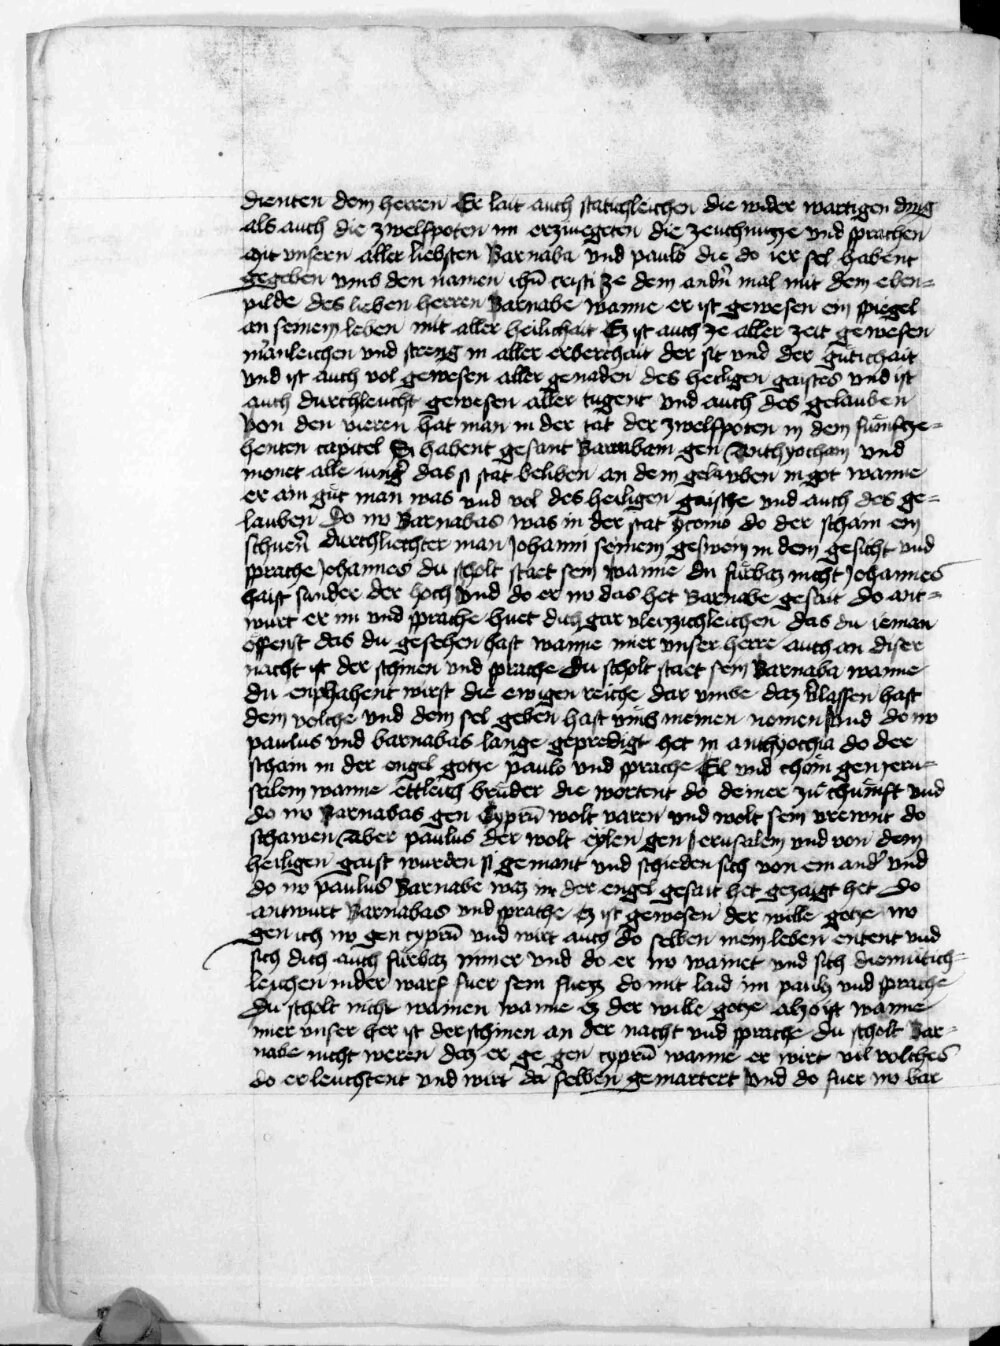 dienten dem herren Er lait auch statichleichen die wider wartigen ding
als auch die zwelfpoten im erzaiegeten die zeuchnuzze vnd sprachen
Mit vnsern aller liebsten Barnaba vnd paulo die do ier sel habent
gegeben vmb den namen ihū cristi ze dem andn̄ mal mit dem eben-
pilde des lieben herren Barnabe wanne er ist gewesen ein spiegel
an seinem leben mit aller heilichait Er ist auch ze aller zeit gewesen
mānleichen vnd streng in aller erberchait der sit vnd der gütichait
vnd ist auch vol gewesen aller genaden des heiligen gaistes vnd ist
auch durchleucht gewesen aller tugent vnd auch des gelauben
Von den vieren hat man in der tat der zwelfpoten in dem fümfze-
henten capitel Si habent gesant Barnabam gen Anthyochiam vnd
monet alle iunḡ das si stat beliben an dem gelauben in got wanne
er ain güt man was vnd vol des heiligen gaiste vnd auch des ge-
lauben Do no Barnabas was in der stat yconio do der scham ein
schuen̄ durchliechter man Johanni seinem gesweim in dem gesicht vnd
sprache Johannes du scholt staet sein wanne du fürbaz nicht Johannes
haist sunder der hoch vnd do er no das het Barnabe gesait do ant-
wurt er im vnd sprache huet dich gar vleizzichleichen das du ieman
offenst das du gesehen hast wanne mier vnser herre auch an diser
nacht ist der schinen vnd sprache Du scholt staet sein Barnaba wanne
du enphahent wirst die ewigen reiche dar vmbe daz v̄lassen hast
dein volche vnd dein sel geben hast vmb meinen nomen vnd do no
paulus vnd barnabas lange gepredigt het in anthyochia do der
scham in der engel gotze paulo vnd sprache Eil vnd chöm gen jeru-
salem wanne ettleich brüder die wortent do deiner zü chumft vnd
do no Barnabas gen Cyprū wolt varen vnd wolt sein vrewnt do
schawen Aber paulus der wolt eylen gen Jerusalem vnd von dem
heiligen gaist wurden si gemant vnd schieden sich von ein and̄ vnd
do no paulus Barnabe waz im der engel gesait het gezaigt het Do
antwurt Barnabas vnd sprache Ez ist gewesen der wille gotze no
gen ich no gen cyprū vnd wirt auch do selben mein leben entent vnd
sich dich auch fürbaz nimer vnd do er no wainet vnd sich diemütich-
leichen nider warf fuer sein fuezz do mit laid im pauls vnd sprache
Du scholt nicht wainen wanne ez der wille gotze also ist wanne
mier vnser her ist der schinen an der nacht vnd sprache du scholt Bar-
nabe nicht weren daz er ge gen cyprū wanne er wirt vil volches
do erleuchtent vnd wirt da selben gemartert Vnd do fuer no bar